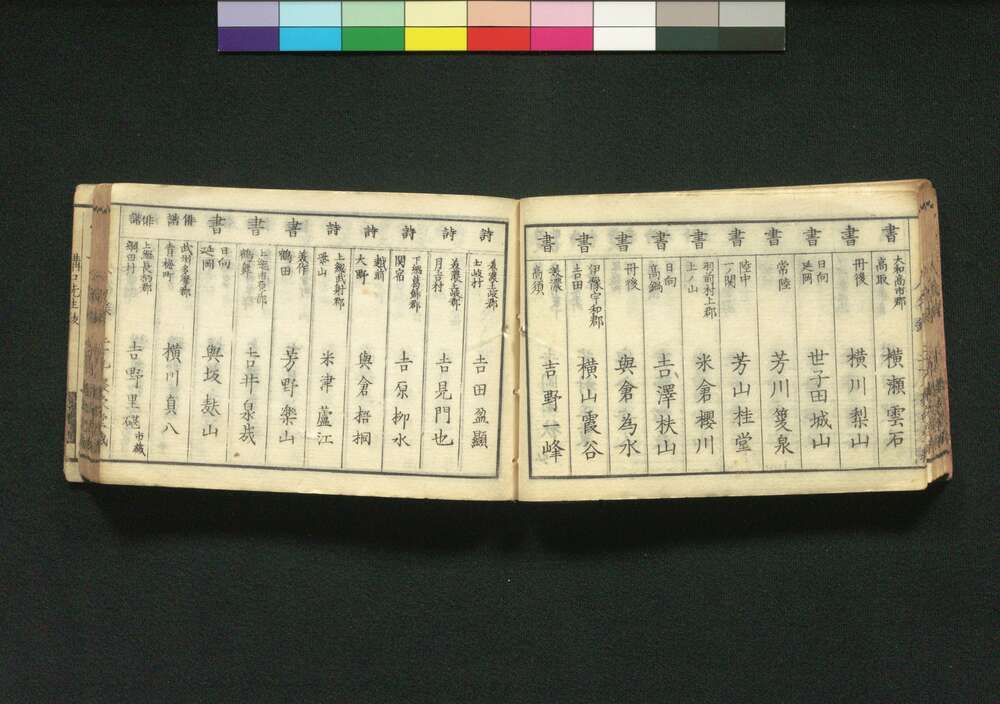 書 大和高市郡 高取 横瀬雲石
書 丹後 横川梨山
書 日向 延岡 世子田城山
書 常陸 芳川篁泉
書 陸中 一ノ関 芳山桂堂
書 羽前村上郡 上ノ山 米倉櫻川
書 日向 高鍋 吉澤扶山
書 丹後 與倉為水
書 伊豫宇和郡 吉田 横山霞谷
書 美濃 高須 吉野一峰
詩 美濃土岐郡 土岐村 吉田盈顯
詩 月吉村 吉見門也
詩 下総葛飾郡 関宿 吉原柳水
詩 越前 大野 與倉梧桐
詩 上総武射郡 米津蘆江
書 美作 鶴田 芳野樂山
書 上総市原郡 鶴舞 吉井泉哉
書 日向 延岡 與坂麸山
俳諧 武州多摩郡 青梅町 横川真八
俳諧 上総長柄郡 綱田村 吉野里礎 市蔵